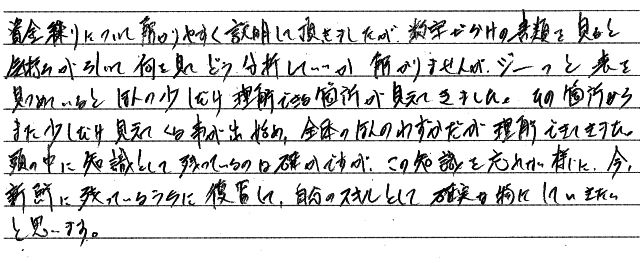 資金繰りについて解かりやすく説明して頂きましたが、数字だらけの書類を見ると
気持ちが引いて何を見てどう分析していいか解かりませんが、ジーっと表を
見つめているとほんの少しだけ理解できる箇所が見えてきました。その箇所から
また少しだけ見えてくる事が出始め、全体のほんのわずかだが理解できてきた。
頭の中に知識として残っているのは確かですが、この知識を忘れない様に、今、
新鮮に残っているうちに復習して、自分のスキルとして確実な物にしていきたい
と思います。